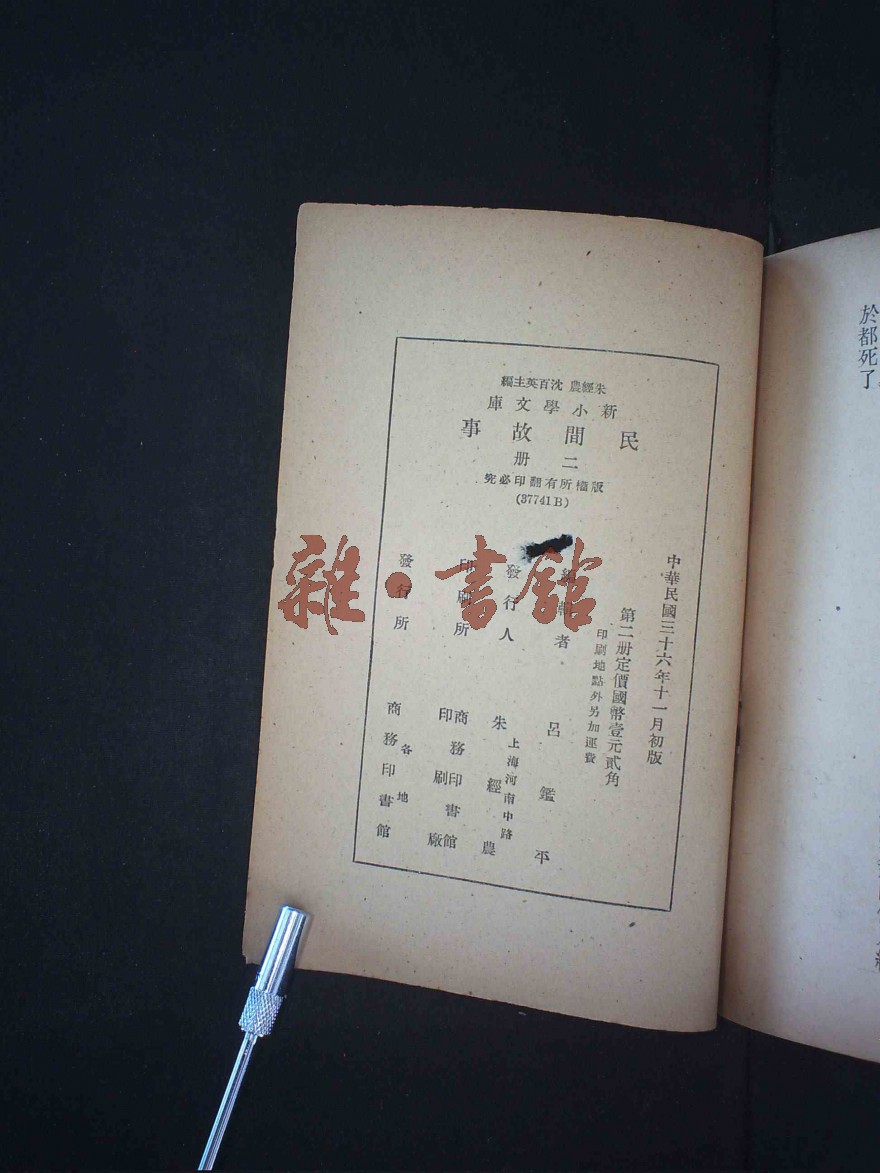 朱經農 沈百英主編
新小學文庫
民間故事
二册
版權所有翻印必究
(37741B)
中華民國三十六年十一月初版
第二册定價國幣壹元貳角
印刷地點外另加運費
編輯者 呂鑑平
發行人 朱經農
上海河南中路
印刷所 商務印書館
印刷廠
發行所 商務印書館
各地
於都死了
雜·書館